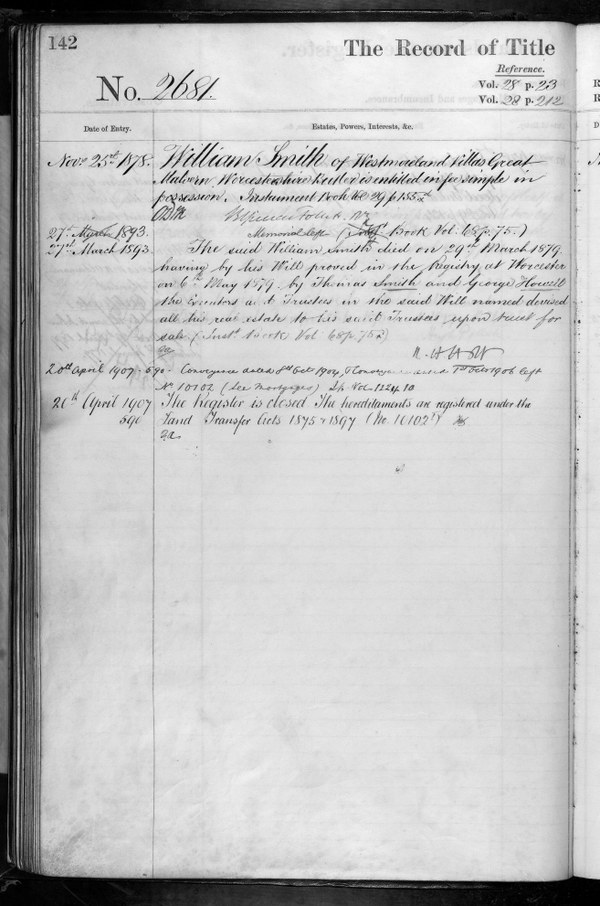 142
The Record of Title
Reference.
No. 2681.
Vol. 28 p. 23
Vol. 28 p. 212
Date of Entry.
Estates, Powers, Interests, &c.
Novr 25th 1878.
William Smith of Westmoreland Villas Great
Malvern Worcestershire is entitled in fee simple in
possession. Instrument Book Vol 29 p 155
27th March 1893.
Memorial left (Inst. Book Vol. 68 p. 75.)
27th March 1893
The said William Smith died on 29th March 1879
having by his Will proved in the Registry at Worcester
on 6th May 1879 by Thomas Smith and George Howell
the Executors and Trustees in the said Will named devised
all his real estate to his said Trustees upon trust for
sale (Inst. Book Vol 68 p. 75)
20th April 1907 - 590 - Conveyance dated 8th Oct 1904, & Conveyance dated Oct 1906 left
No 10102 (See Mortgages)
20th April 1907
The Register is closed The hereditaments are registered under the
590
Land Transfer Acts 1875 & 1897 (No. 10102)